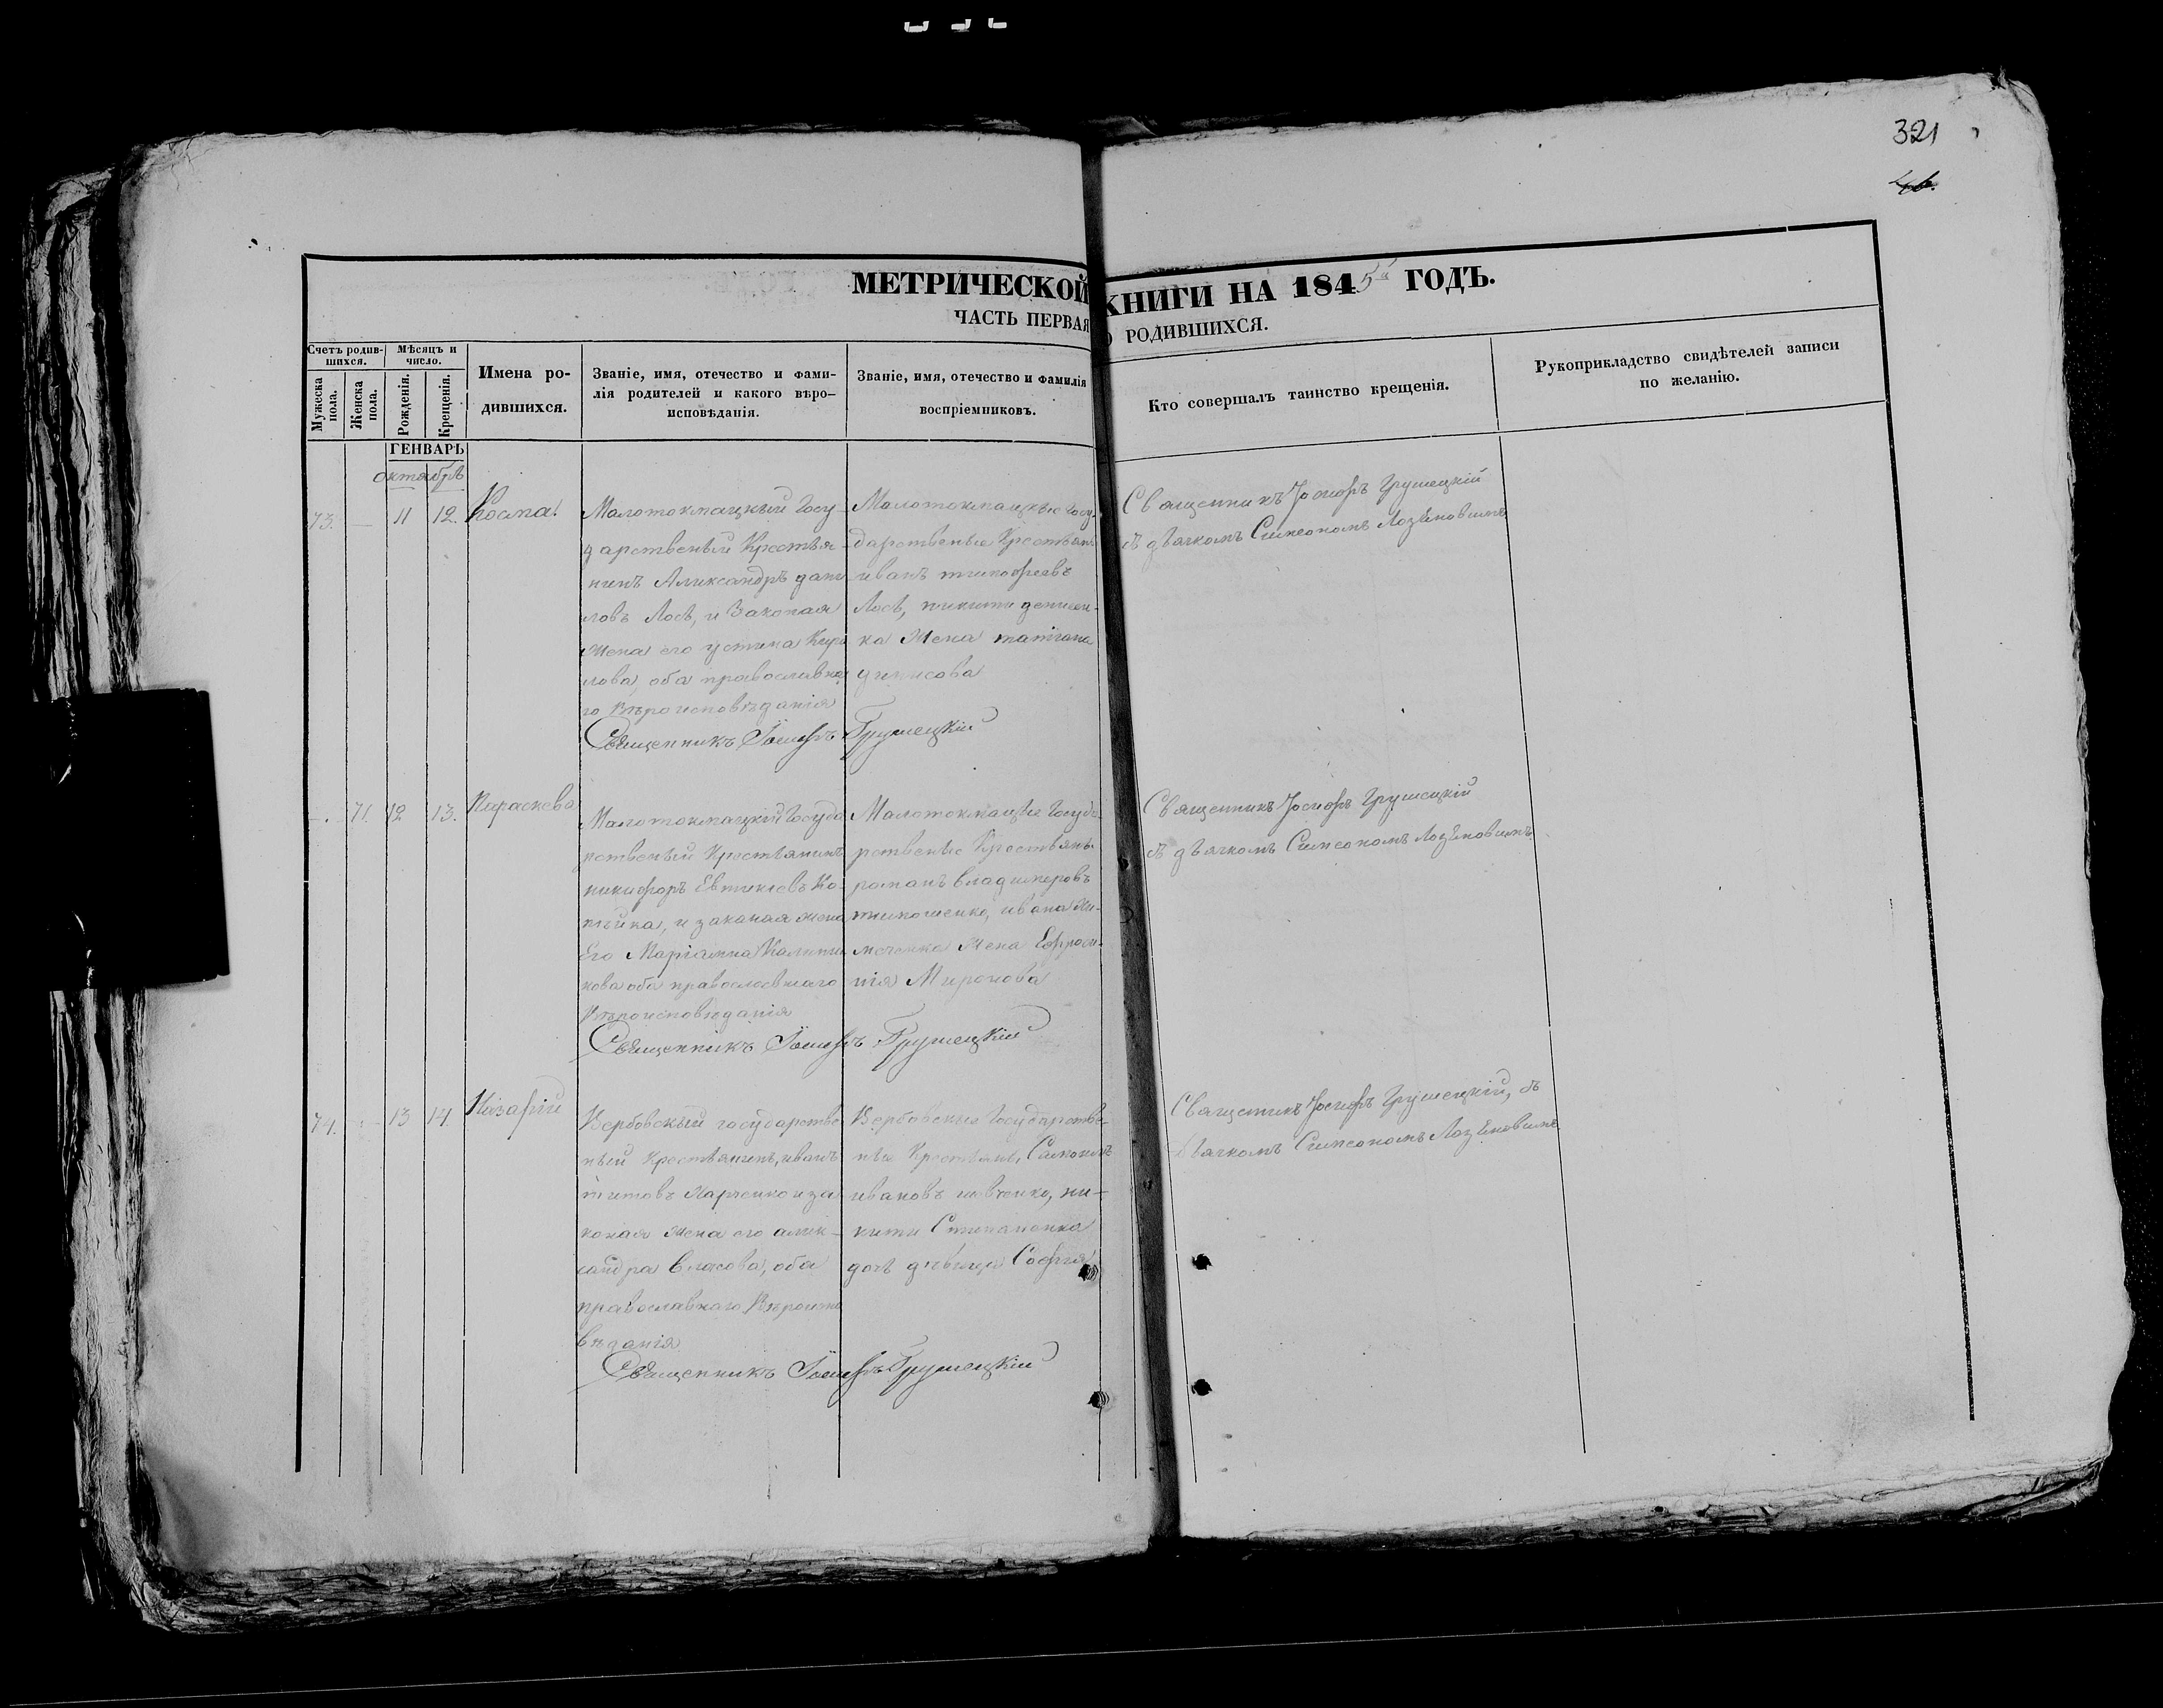 321
46.
МЕТРИЧЕСКОЙ КНИГИ НА 1845й ГОДЪ.
ЧАСТЬ ПЕРВАЯ О РОДИВШИХСЯ.
Счетъ родив-
шихся.
Мужеска пола.
Женска пола.
Мѣсяцъ и
число.
Рожденія.
Крещенія.
Имена ро-
дившихся.
Званіе, имя, отечество и фами-
лія родителей и какого вѣро-
исповѣданія.
Званіе, имя, отечество и фамилія
воспріемниковъ.
Кто совершалъ таинство крещенія.
Рукоприкладство свидѣтелей записи
по желанію.
ГЕНВАРЬ
октябрь
73. — 11 12. Косма.
Малотокмацкый Госу-
дарственый Крестья-
нинъ Александръ дани
ловъ Лось, и Законая
Жена его устина Кири
лова, оба православна
го Вѣроисповѣданія
Малотокмацкые Госу-
дарственые Крестьяне
иванъ тимофеевъ
Лось, никити денисен-
ка Жена татіана
денисова
Священникъ Іосифъ Грушецкій
Священникъ Іосифъ Грушецкій
съ дьячкомъ Симеономъ Лозѣновимъ
—. 71. 12 13. Параскева
Малотокмацкий Госуда
рственый Крестьянинъ
никифоръ Евтихіевъ Ко-
пѣйка, и законая жена
Его Маріамна Калини
кова оба православнаго
Вѣроисповѣданія
Малотокмацкіе Госуда
рственые Крестьяне
романъ владимеровъ
тимошенко, ивана Ми-
жена Ефроси-
нія Миронова
Священникъ Іосифъ Грушецкій
Священникъ Іосифъ Грушецкій
съ дьячкомъ Симеономъ Лозѣновимъ
74. — 13 14. Назарій
Вербовскый государстве
ный Крестьянинъ, иванъ
титовъ Марченко и за
коная жена его алек-
сандра власова, оба
православнаго Вѣроиспо
вѣданія
Вербовскые Государстве-
ные Крестьяне,
ивановъ шевченко, ни-
кити Степаненка
дочь дѣвица Софія
Священникъ Іосифъ Грушецкій
Священникъ Іосифъ Грушецкій, съ
дьячкомъ Симеономъ Лозѣновимъ